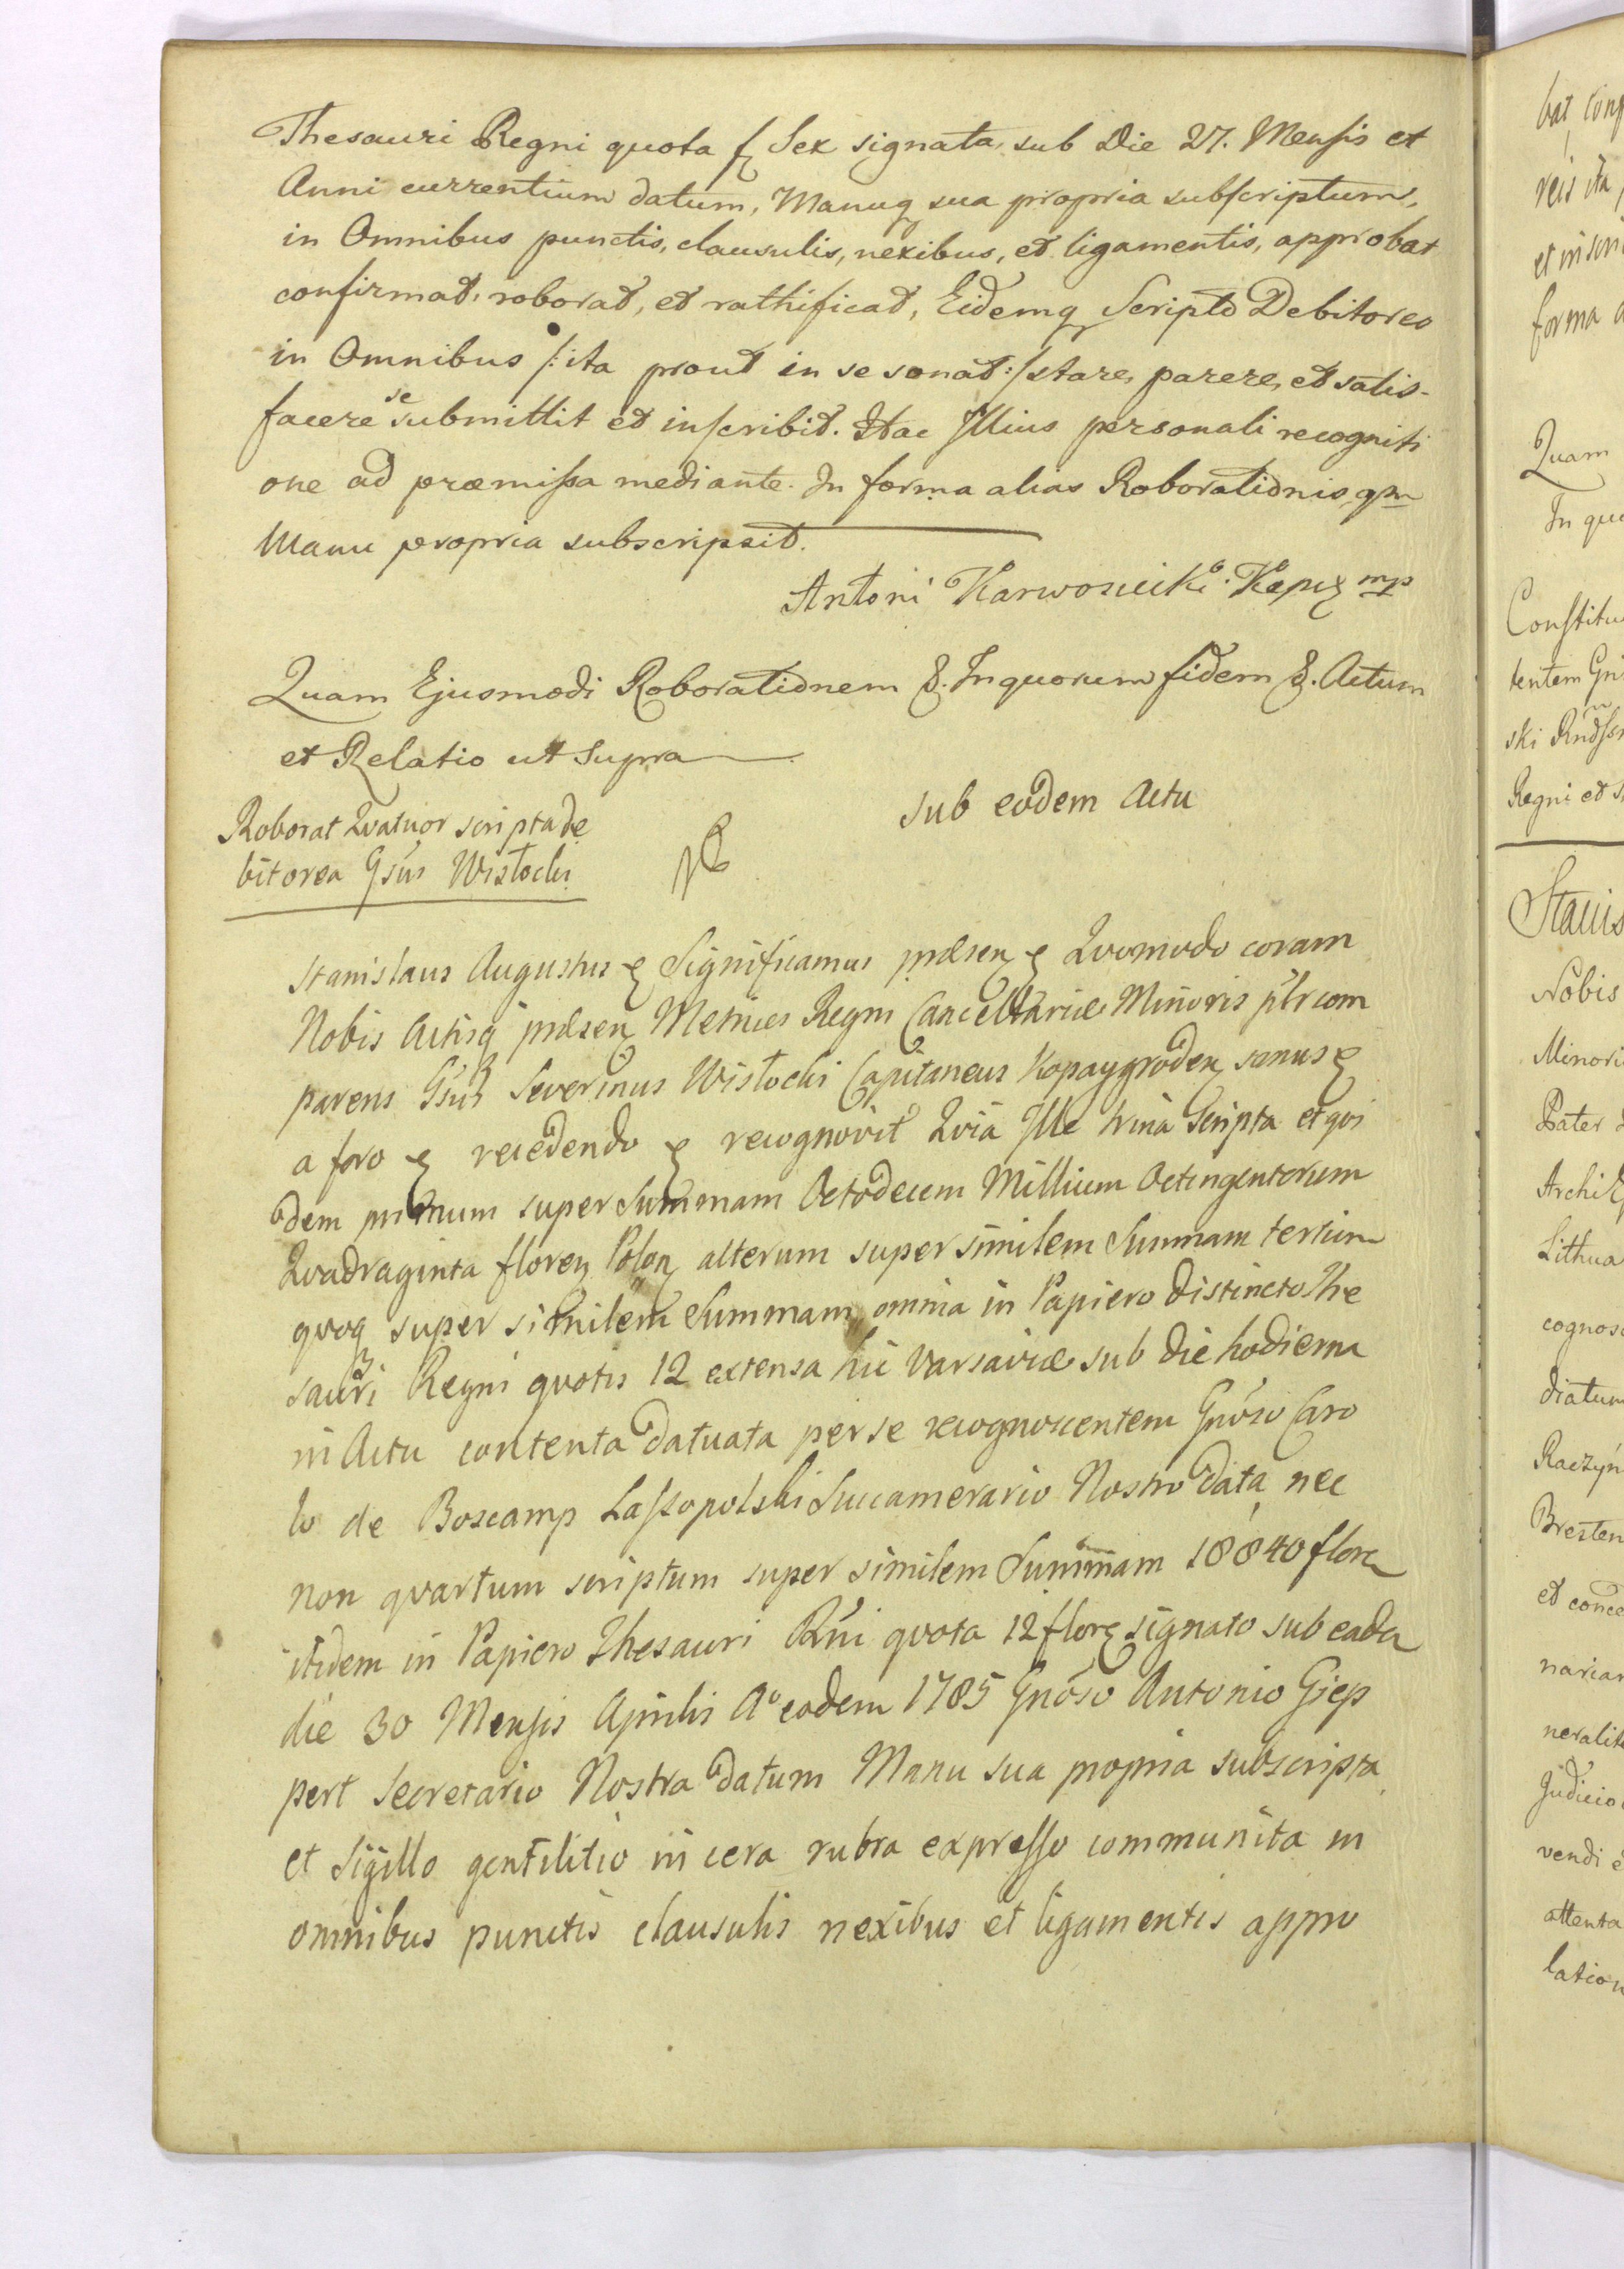 Thesauri Regni quota f Sex signata, sub Die 27. Mensis et
Anni currentium datum, Manuq sua propria subscriptum,
in Omnibus punctis, clausulis, nexibus, et ligamentis, approbat
confirmat, roborat, et rathificat, Eidemq Scripto Debitoreo
in Omnibus /: ita prout in se sonat :/ stare, parere, et satis-
facere se submittit et inscribit. Hac Illius personali recogniti
one ad præmissa mediante. In forma alias Roborationis
Manu propria subscripsit.
Antoni Karwosiecki mp
Quam Ejusmodi Roborationem &. In quorum fidem &. Actum
et Relatio ut Supra
sub eodem Actu
Roborat Qvatuor scripta de
bitorea Gsus Wisłocki
Stanislaus Augustus & Significamus præsen & Qvomodo coram
Nobis Actisq præsen Metrices Regni Cancellariæ Minoris plr com
parens Gsus Severinus Wisłocki Capitaneus Kopaygroden sanus &
a foro & recedendo & recognovit Qvia Ille trina Scripta et qvi
dem primum super Summam Octodecem Millium Octingentorum
Qvadraginta floren Polon alterum super similem Summam tertium
qvoq super similem Summam omnia in Papiero distincto The
sauri Regni qvotis 12 extensa hic Varsaviæ sub die hodierna
in Actu contenta datuata per se recognoscentem Gnoso Caro
lo de Boscamp Lassopolski Succamerario Nostro data nec
non qvartum scriptum super similem Summam 18840 flore
itidem in Papiero Thesauri Rni qvota 12 flore signato sub eada
die 30 Mensis Aprilis Ao eodem 1785 Gnoso Antonio Giep
pert Secretario Nostra datum Manu sua propria subscripta
et Sigillo gentilitio in cera rubra expresso communita in
omnibus punctis clausulis nexibus et ligamentis appro
bat
reis ita
et
forma
Quam
In
tentem
ski
Regni et
Stanis
Nobis
Minori
Pater
Archi
Lithua
cognos
diatum
Raczyn
Bresten
et conce
narian
neralit
Judicio
vendi
attenta
lation